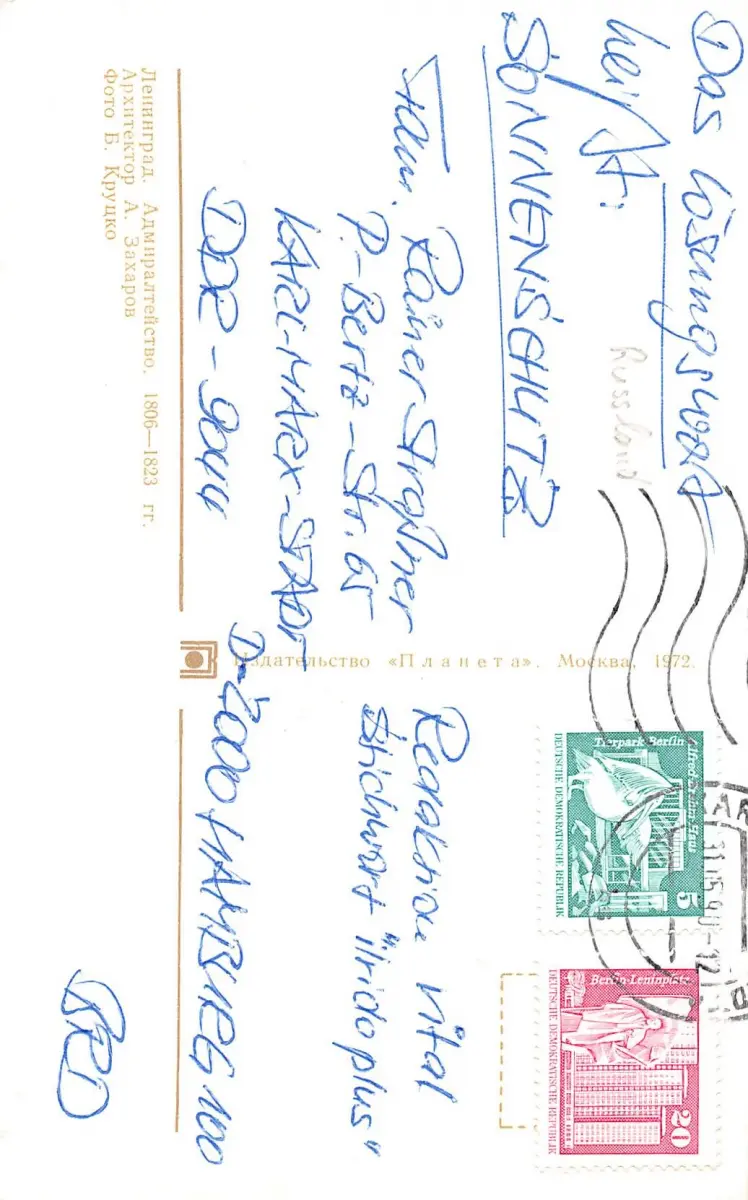 Das Lösungswort
heißt:
SONNENSCHUTZ
Russland
Fam. Rainer Straßner
P.-Bertz-Str. 65
KARL-MARX-STADT
DDR - 9044
Ленинград. Адмиралтейство. 1806—1823 гг.
Архитектор А. Захаров
Фото Б. Круцко
Издательство «Планета». Москва. 1972.
Tierpark Berlin
Alfred-Brehm-Haus
DEUTSCHE DEMOKRATISCHE REPUBLIK
5
KAR
31.05.90-12
Berlin-Leninplatz
DEUTSCHE DEMOKRATISCHE REPUBLIK
20
Redaktion vital
Stichwort "Iridoplus"
D-2000 HAMBURG 100
BRD